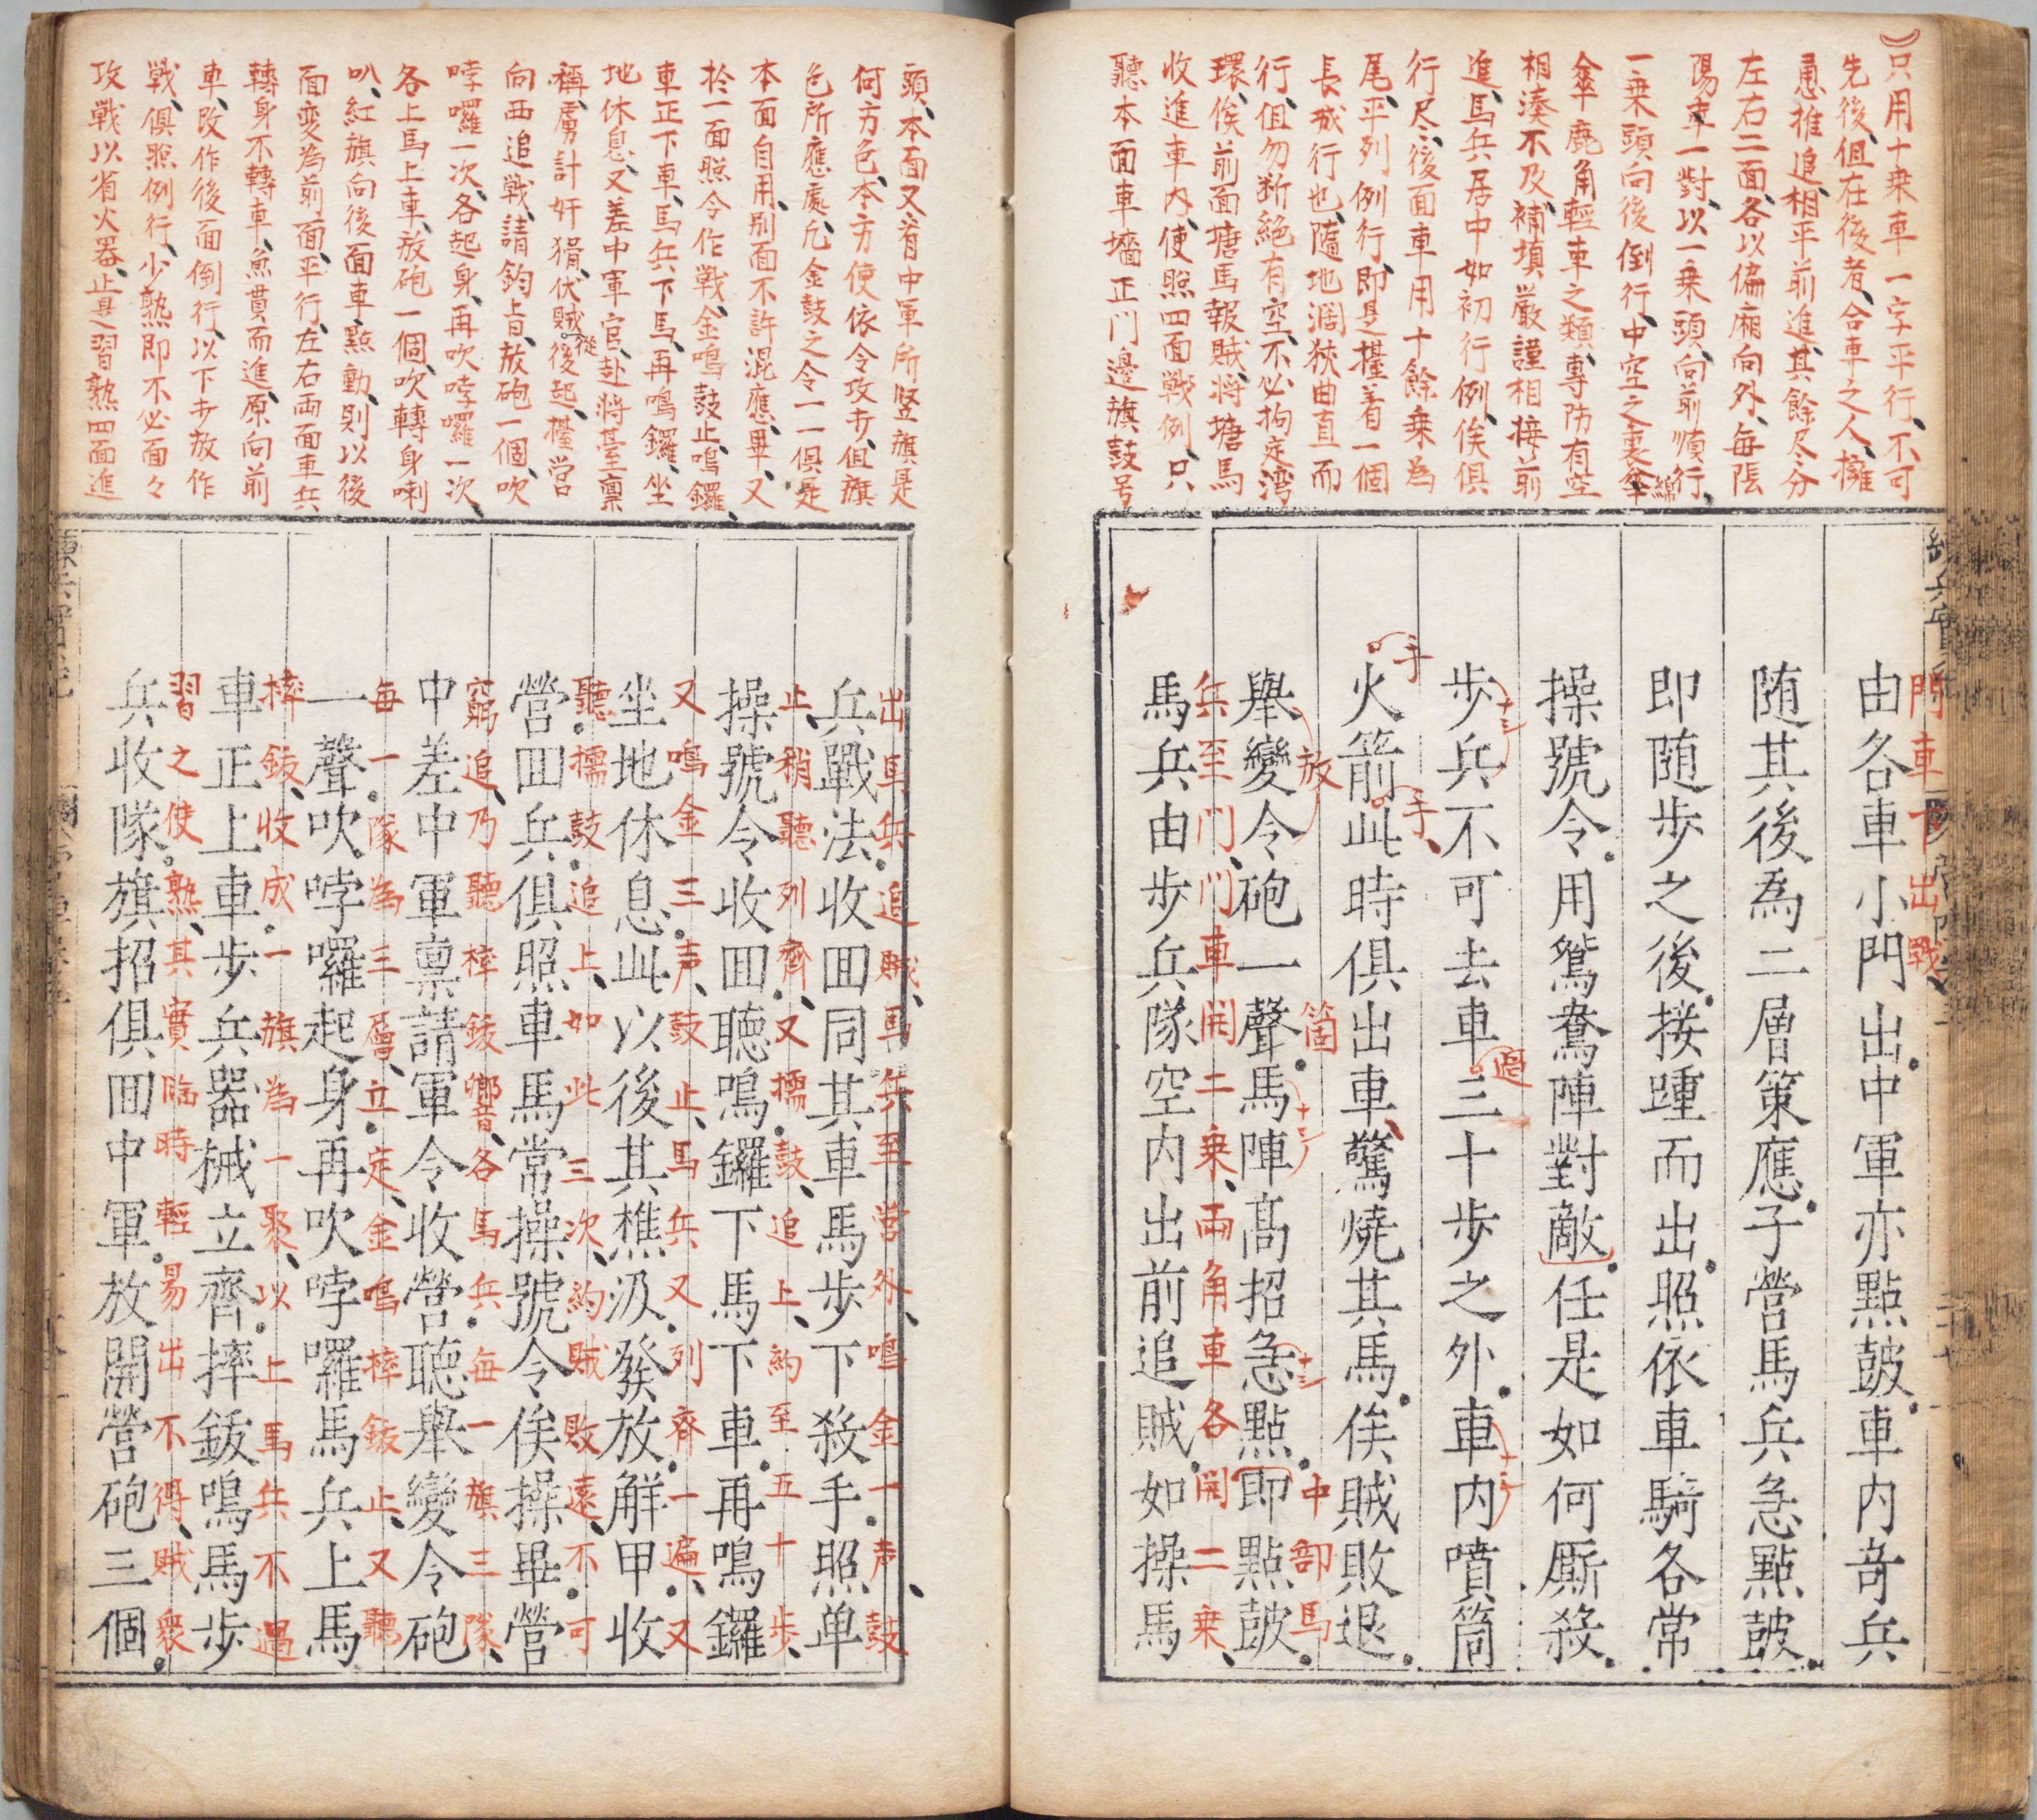 只用十乗車一字平行、不可
先後、但在後者、合車之人、擁
恿推追、相平前進、其餘尽分
左右二面、各以偏廂向外、毎張
陽車一對、以一乗頭向前順行、
一乗頭向後倒行、中空之裏、綿傘
傘鹿角輕車之類、專防有空
相湊不及、補填嚴謹相接、前
進、馬兵居中如初行例、俟俱
行尽、後面車用十餘乗為
尾、平列例行、即是擡着一個
長城行也、隨地濶狹曲直而
行、但勿断絶有空、不必拘定湾
環、俟前面塘馬報賊、将塘馬
收進車内、使照四面戰例、只
聽本面車墻正門邊旗鼓号
門車下出戰、
由各車小門出中軍亦點鼓車内竒兵
随其後為二層策應子營馬兵急點鼓
即随歩之後接踵而出照依車騎各常
操號令用鴛鴦陣對敵任是如何厮殺
歩兵不可去車三十歩之外車内噴筒
過
手
火箭此時俱出車驚燒其馬俟賊敗退
手
放箇
舉變令砲一聲馬陣髙招急點即點鼓
中部馬
兵至門、門車開二乗、兩角車各開二乗、
馬兵由歩兵隊空内出前追賊如操馬
頭、本面又看中軍所竪旗是
何方色、本方使依令攻打、但旗
色所應處、凢金鼓之令一一俱是
本面自用、别面不許混應、畢、又
於一面照令作戰、金鳴鼓止、鳴鑼、
車正下車、馬兵下馬、再鳴鑼、坐
地休息、又差中軍官、赴将臺禀
稱、虜計奸猾、伏賊從後起、擡營
向西追戰、請鈞旨、放砲一個、吹
哱囉一次、各起身、再吹哱囉一次、
各上馬上車、放砲一個、吹轉身喇
叭、紅旗向後面車、點動、則以後
面變為前面、平行、左右両面車兵
轉身不轉車、魚貫而進、原向前
車、改作後面倒行、以下打放作
戰、俱照例行、少熟即不必面々
攻戰以省火器、止是習熟四面進
出車兵追賊、馬兵至営外、鳴金一声、鼓
兵戰法收囬同其車馬歩下殺手照单
止、稍聽列齊、又擂鼓、追上約至五十歩、
操號令收囬聽鳴鑼下馬下車再鳴鑼
又鳴金三声、鼓止、馬兵又列齊一遍、又
坐地休息此以後其樵汲發放解甲收
聽擂鼓追上、如此三次、約賊敗遠、不可
營囬兵俱照車馬常操號令俟操畢營
窮追、乃聽摔鈸響、各馬兵、每一旗三隊、
中差中軍禀請軍令收營聽舉變令砲
每一隊為三層立定、金鳴摔鈸止、又聽
一聲吹哱囉起身再吹哱囉馬兵上馬
摔鈸、收成一旗為一聚、以上馬兵不過
車正上車歩兵器械立齊摔鈸鳴馬歩
習之使熟、其實臨時輕易出不得、賊衆
兵收隊旗招俱囬中軍放開營砲三個